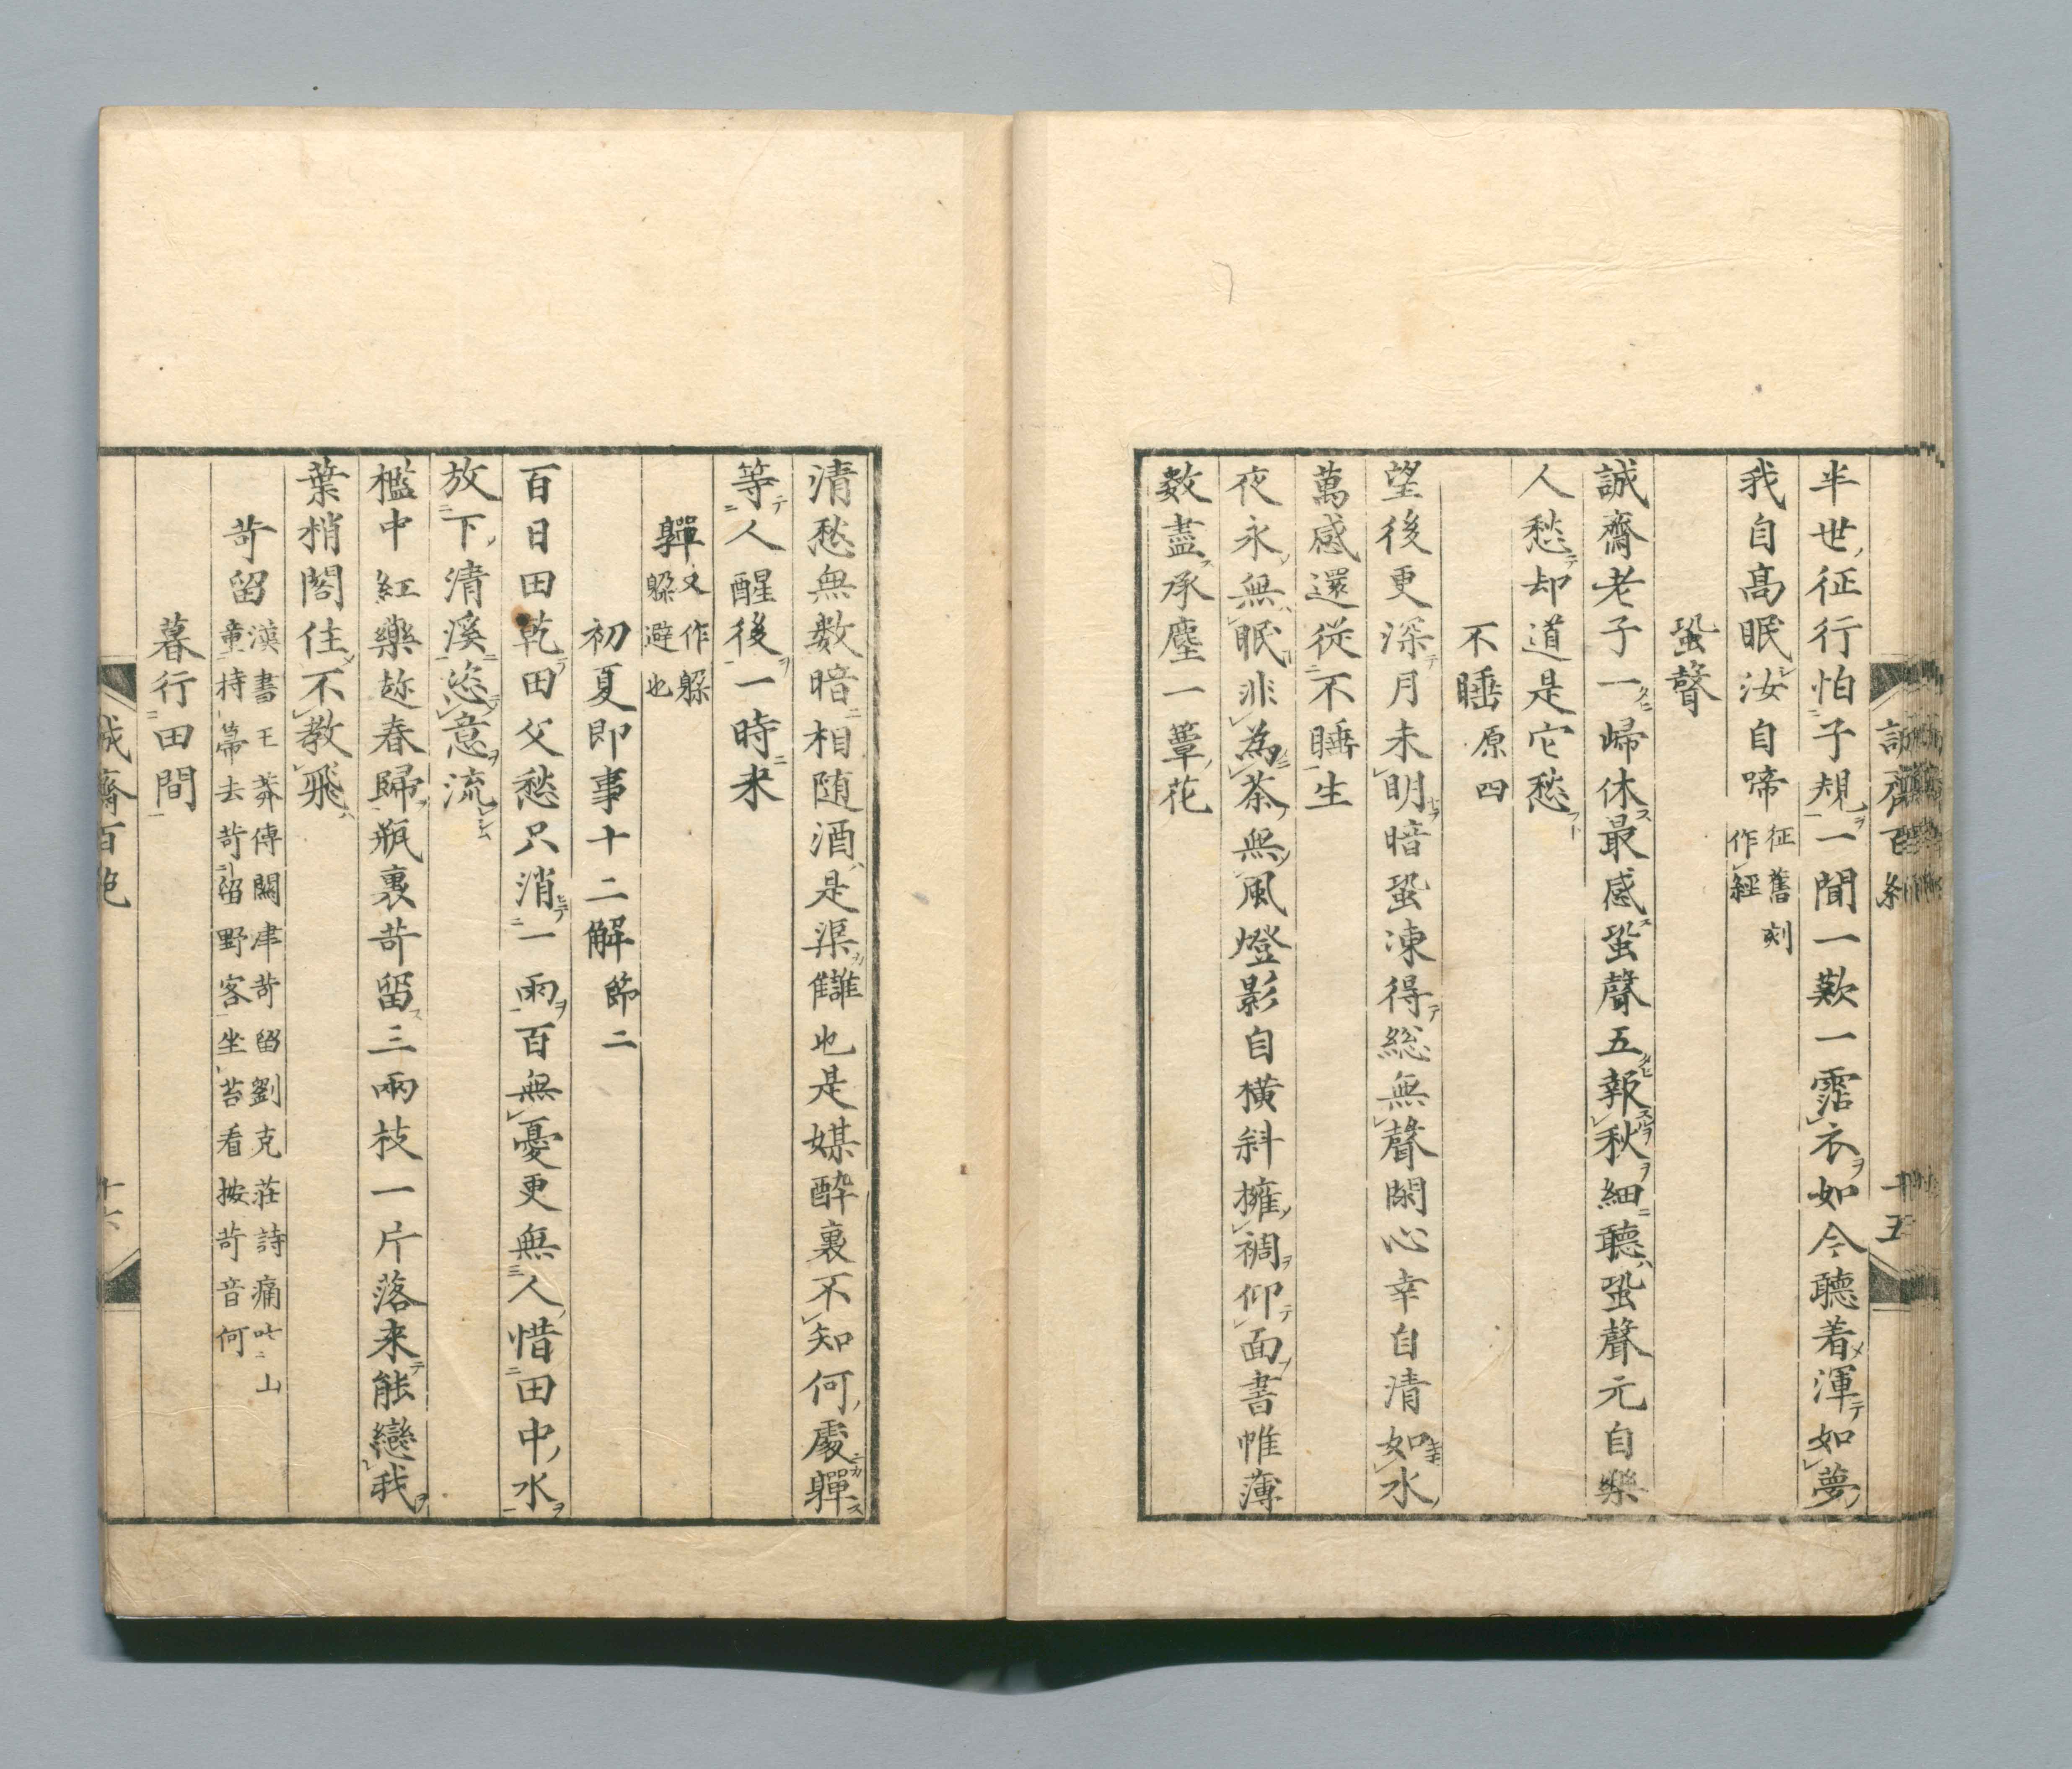 半世征行怕子規一聞一歎一霑衣如今聽着渾如夢
我自高眠汝自啼 征舊刻作經
蛩聲
誠齋老子一歸休最感蛩聲五報秋細聽蛩聲元自樂
人愁却道是它愁
不睡 原四
望後更深月未明暗蛩凍得総無聲閑心幸自清如水
萬感還從不睡生
夜永無眠非為茶無風燈影自横斜擁裯仰面書帷薄
数盡承塵一蕈花
清愁無数暗相随酒是渠讎也是媒醉裏不知何處軃
等人醒後一時来
軃 又作躱躱避也
初夏即事十二解 節二
百日田乾田父愁只消一雨百無憂更無人惜田中水
放下清溪恣意流
檻中紅藥趂春歸瓶裏苛留三兩枝一片落来能戀我
葉梢閣住不教飛
苛留 漢書王莽傳關津苛留劉克莊詩痛叱山
童持箒去苛留野客坐苔看按苛音何
暮行田間
誠齋百絶
十六